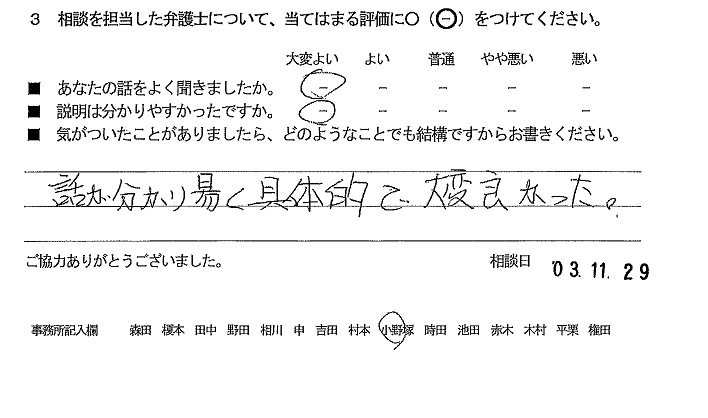 3 相談を担当した弁護士について、当てはまる評価に○（㊀）をつけてください。
大変よい よい 普通 やや悪い 悪い
■ あなたの話をよく聞きましたか。 － － － － －
■ 説明は分かりやすかったですか。 － － － － －
■ 気がついたことがありましたら、どのようなことでも結構ですからお書きください。
話が分かり易く具体的で大変良かった。
ご協力ありがとうございました。 相談日 '03.11.29
事務所記入欄 森田 榎本 田中 野田 相川 申 吉田 村本 小野塚 時田 池田 赤木 木村 平栗 権田